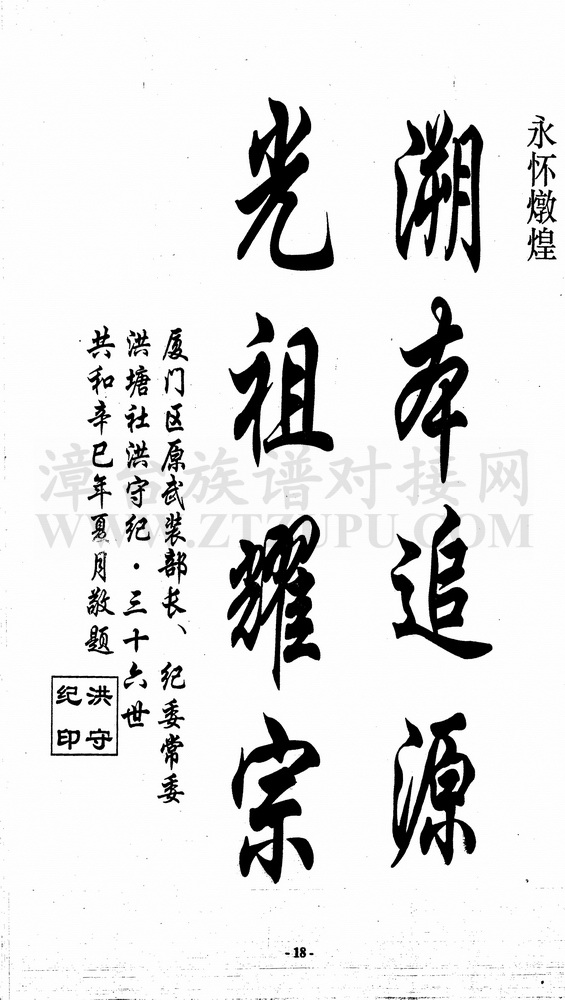 永怀燉煌
溯本追源
光祖耀宗
厦门区原武装部长、纪委常委
洪塘社洪守纪·三十六世
共和辛巳年夏月敬题
洪守
纪印
漳台族谱对接网
WWW.ZTZUPU.COM
- 18 -